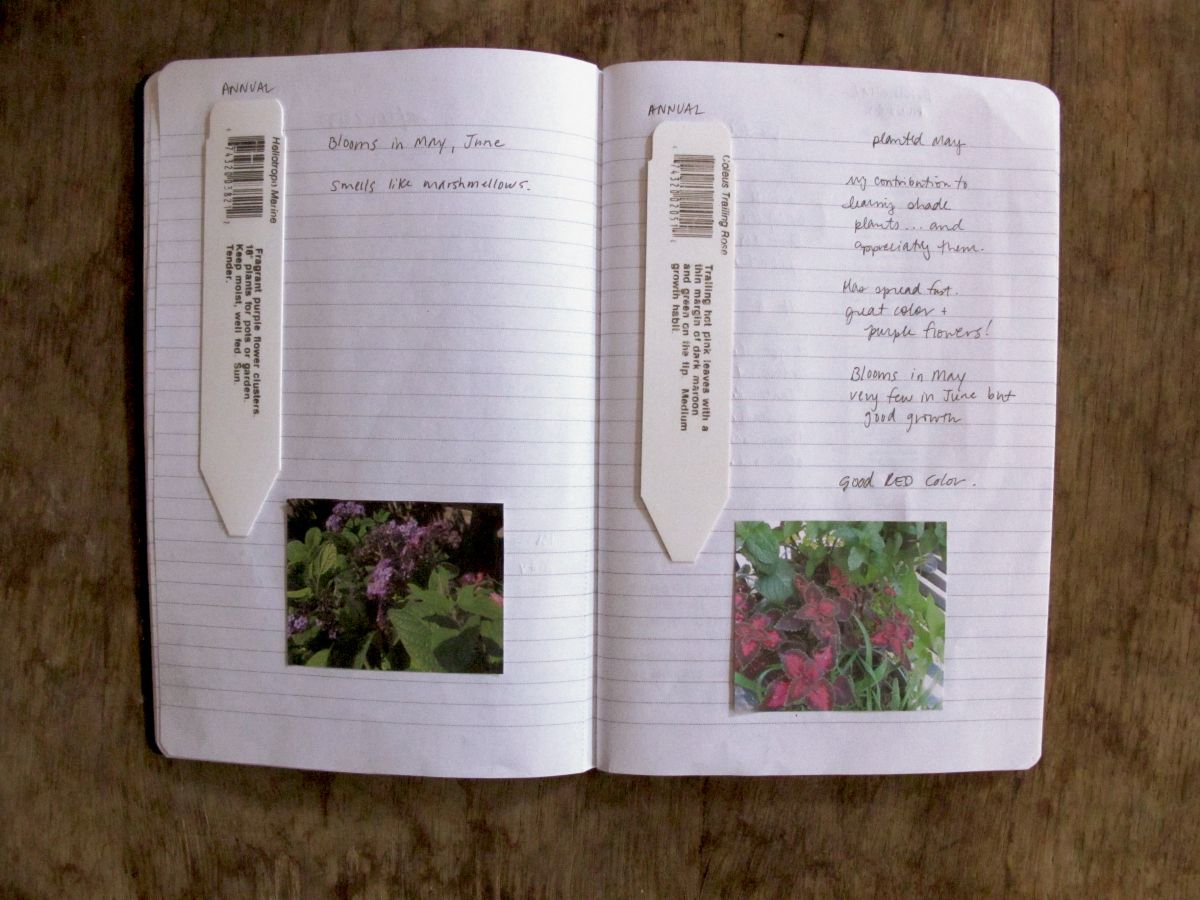 ANNUAL
Heliotrope Marine
Fragrant purple flower clusters.
18" plants for pots or garden.
Keep moist, well fed. Sun.
Tender.
Blooms in May, June
smells like marshmellows.
ANNUAL
Coleus Trailing Rose
Trailing hot pink leaves with a
thin margin of dark maroon
and green on the tip Medium
growth habit.
planted May
my contribution to
learning shade
plants... and
appreciating them.
Has spread fast.
great color +
purple flowers!
Blooms in May
very few in June but
good growth
good RED color.